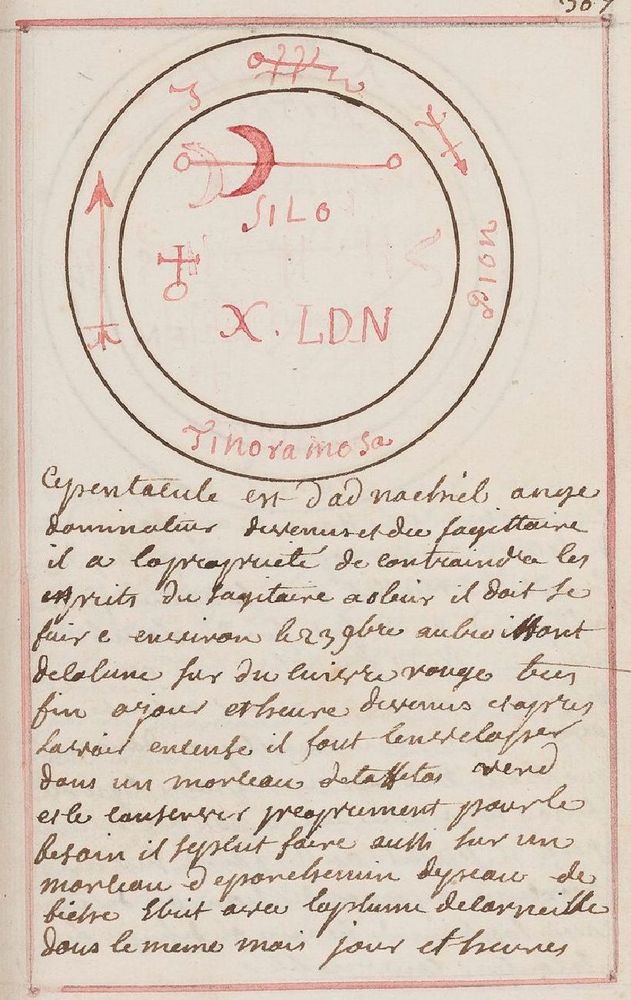 SILO
X. LDN
Tinoramosa
Ce pentacule est d'adnachiel ange
dominateur de venus et du sagittaire
il a la propriete de contraindre les
esprits du sagitaire a obeir il doit se
faire environ le 23 9bre au croissant
de la lune sur du cuivre rouge bien
fin a jour et heure de venus et apres
lavoir encensé il faut lenvelopper
dans un morceau de taffetas verd
et le conserver proprement pour le
besoin il se peut faire aussi sur un
morceau de parchemin de peau de
biche Ecrit avec la plume de corneille
dans le meme mois jour et heures